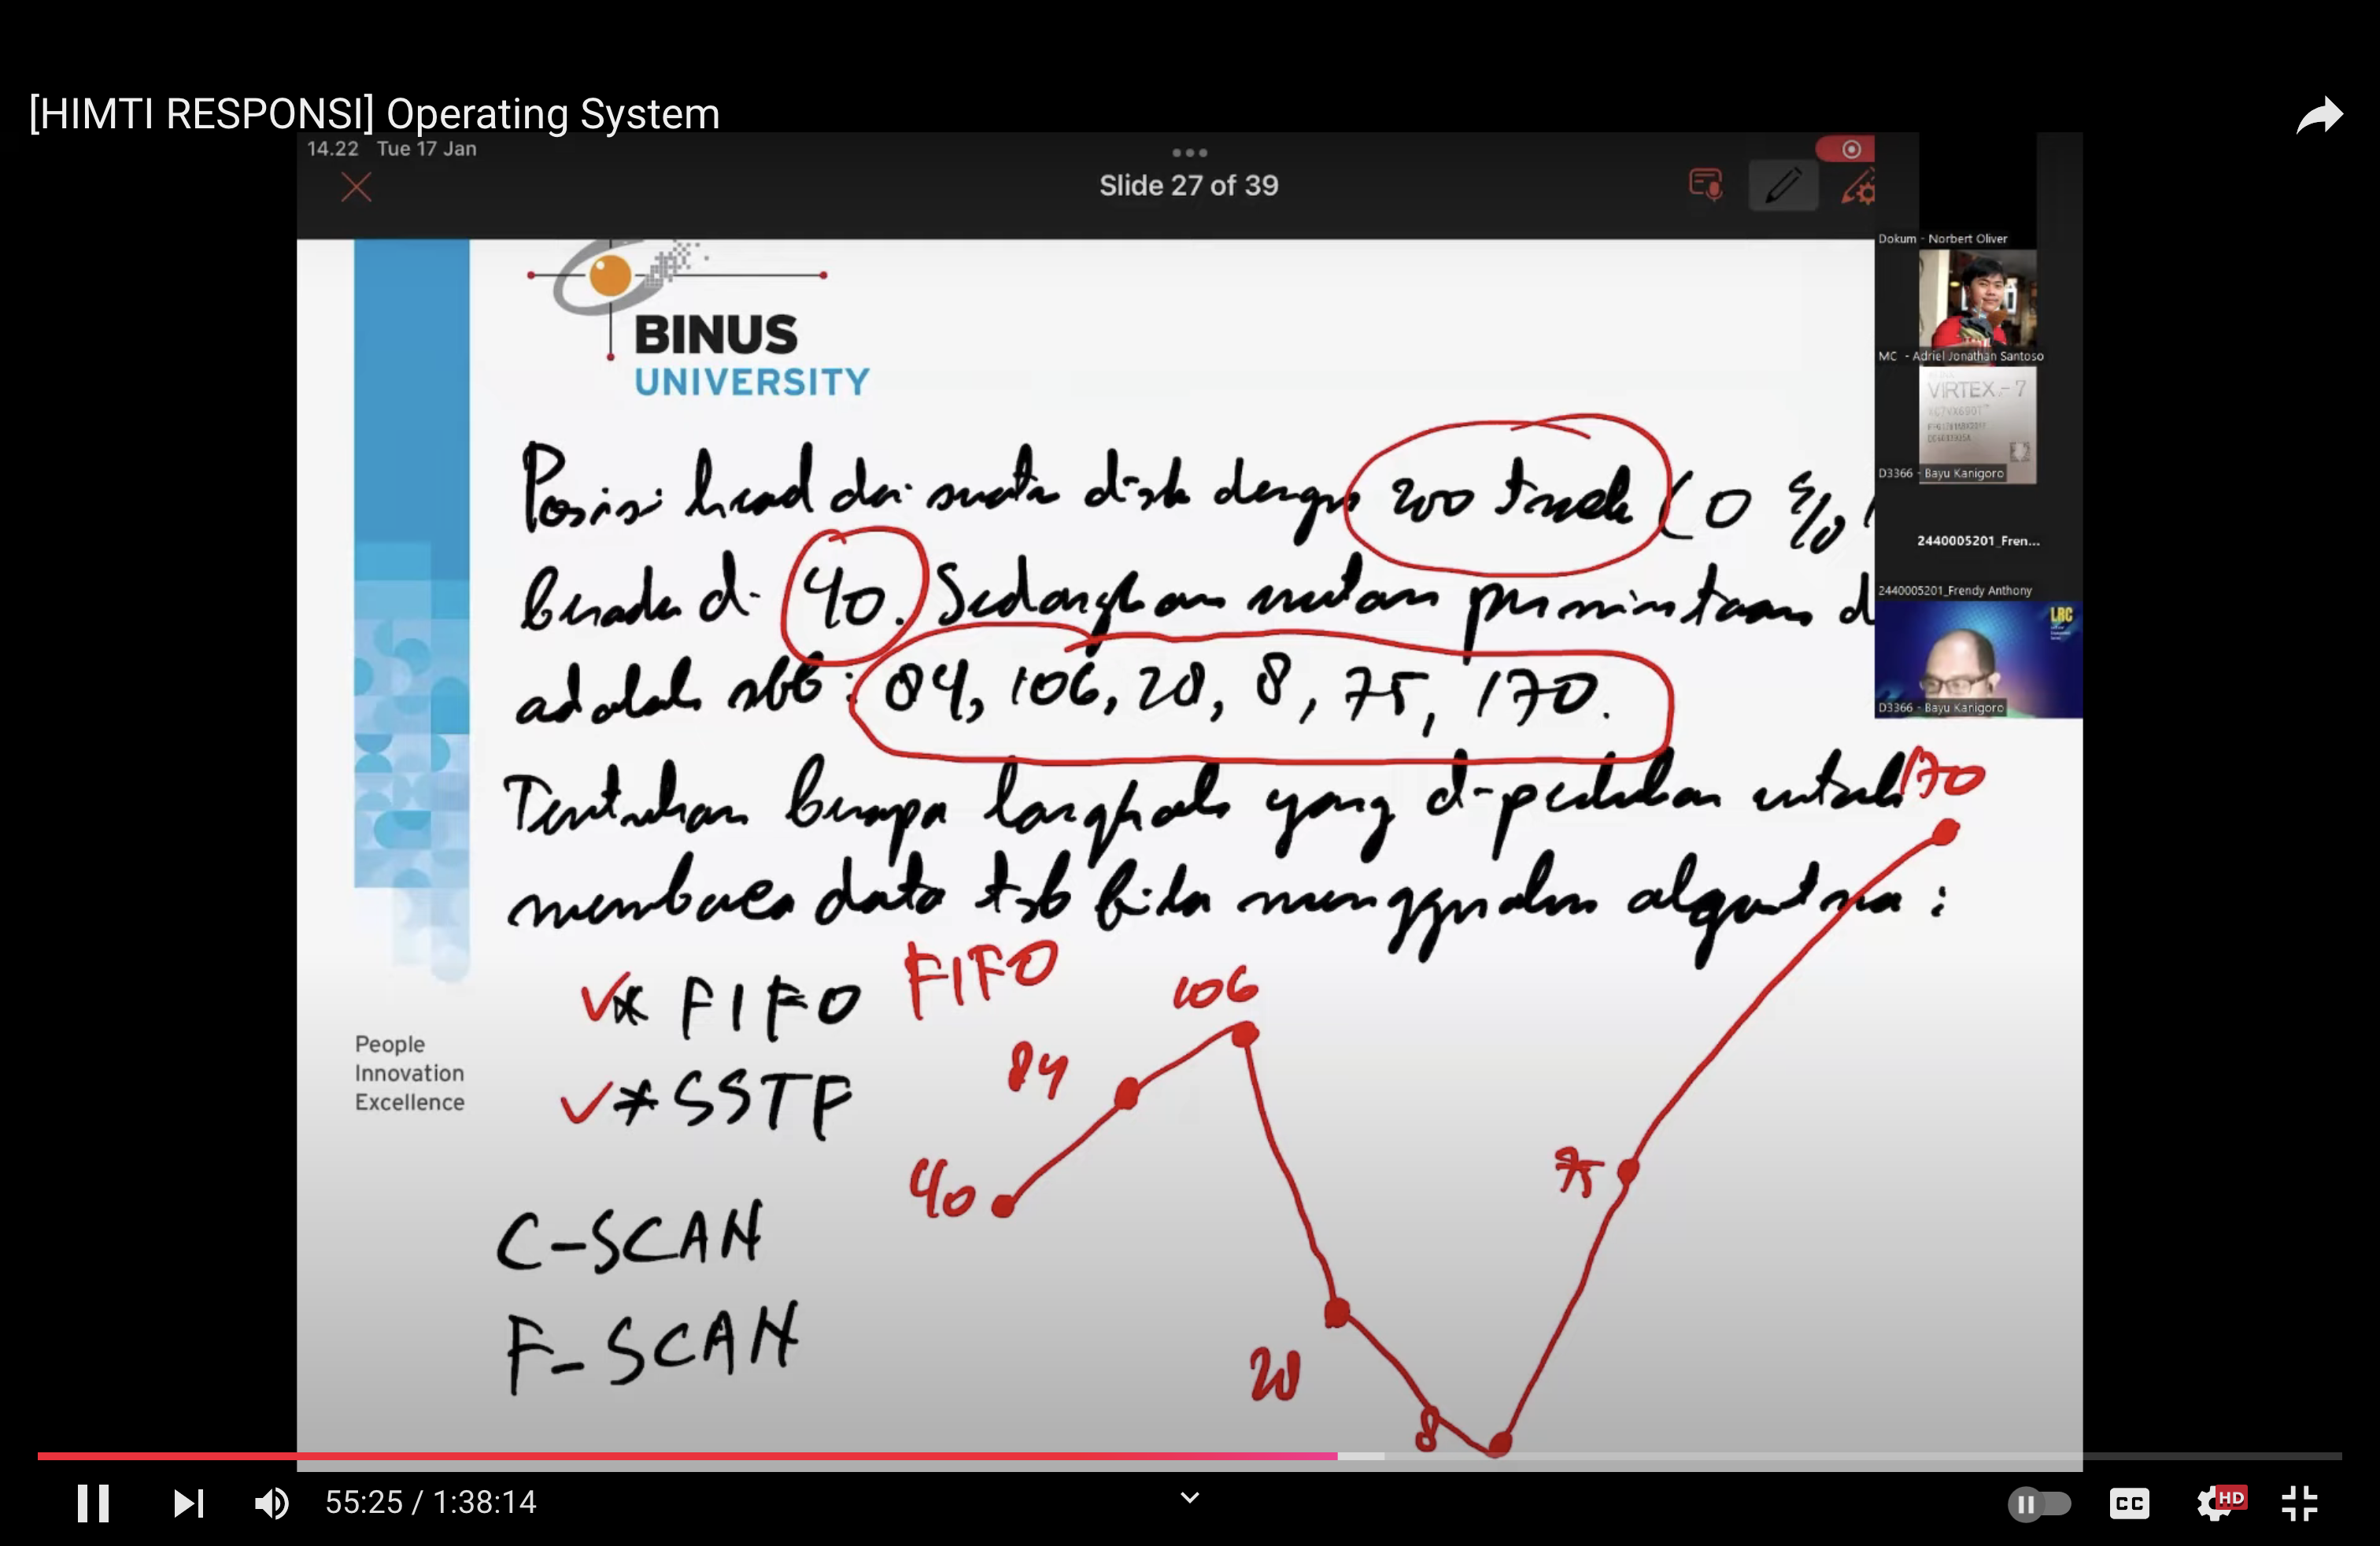 [HIMTI RESPONSI] Operating System
14.22 Tue 17 Jan
Slide 27 of 39
Dokum - Norbert Oliver
BINUS
UNIVERSITY
MC - Adriel Jonathan Santoso
VIRTEX-7
D3366 - Bayu Kanigoro
Posisi head dari suatu disk dengan 200 track (0
2440005201_Fren...
2440005201_Frendy Anthony
LRC
berada di 40. Sedangkan urutan permintaan d
adalah sbb: 84, 106, 28, 8, 75, 170.
D3366 - Bayu Kanigoro
Tentukan berapa langkah yang diperlukan untuk
170
membaca data tsb bila menggunakan algoritma :
* FIFO
FIFO
106
84
* SSTF
40
75
C-SCAN
F-SCAN
28
8
People
Innovation
Excellence
55:25 / 1:38:14
CC
HD